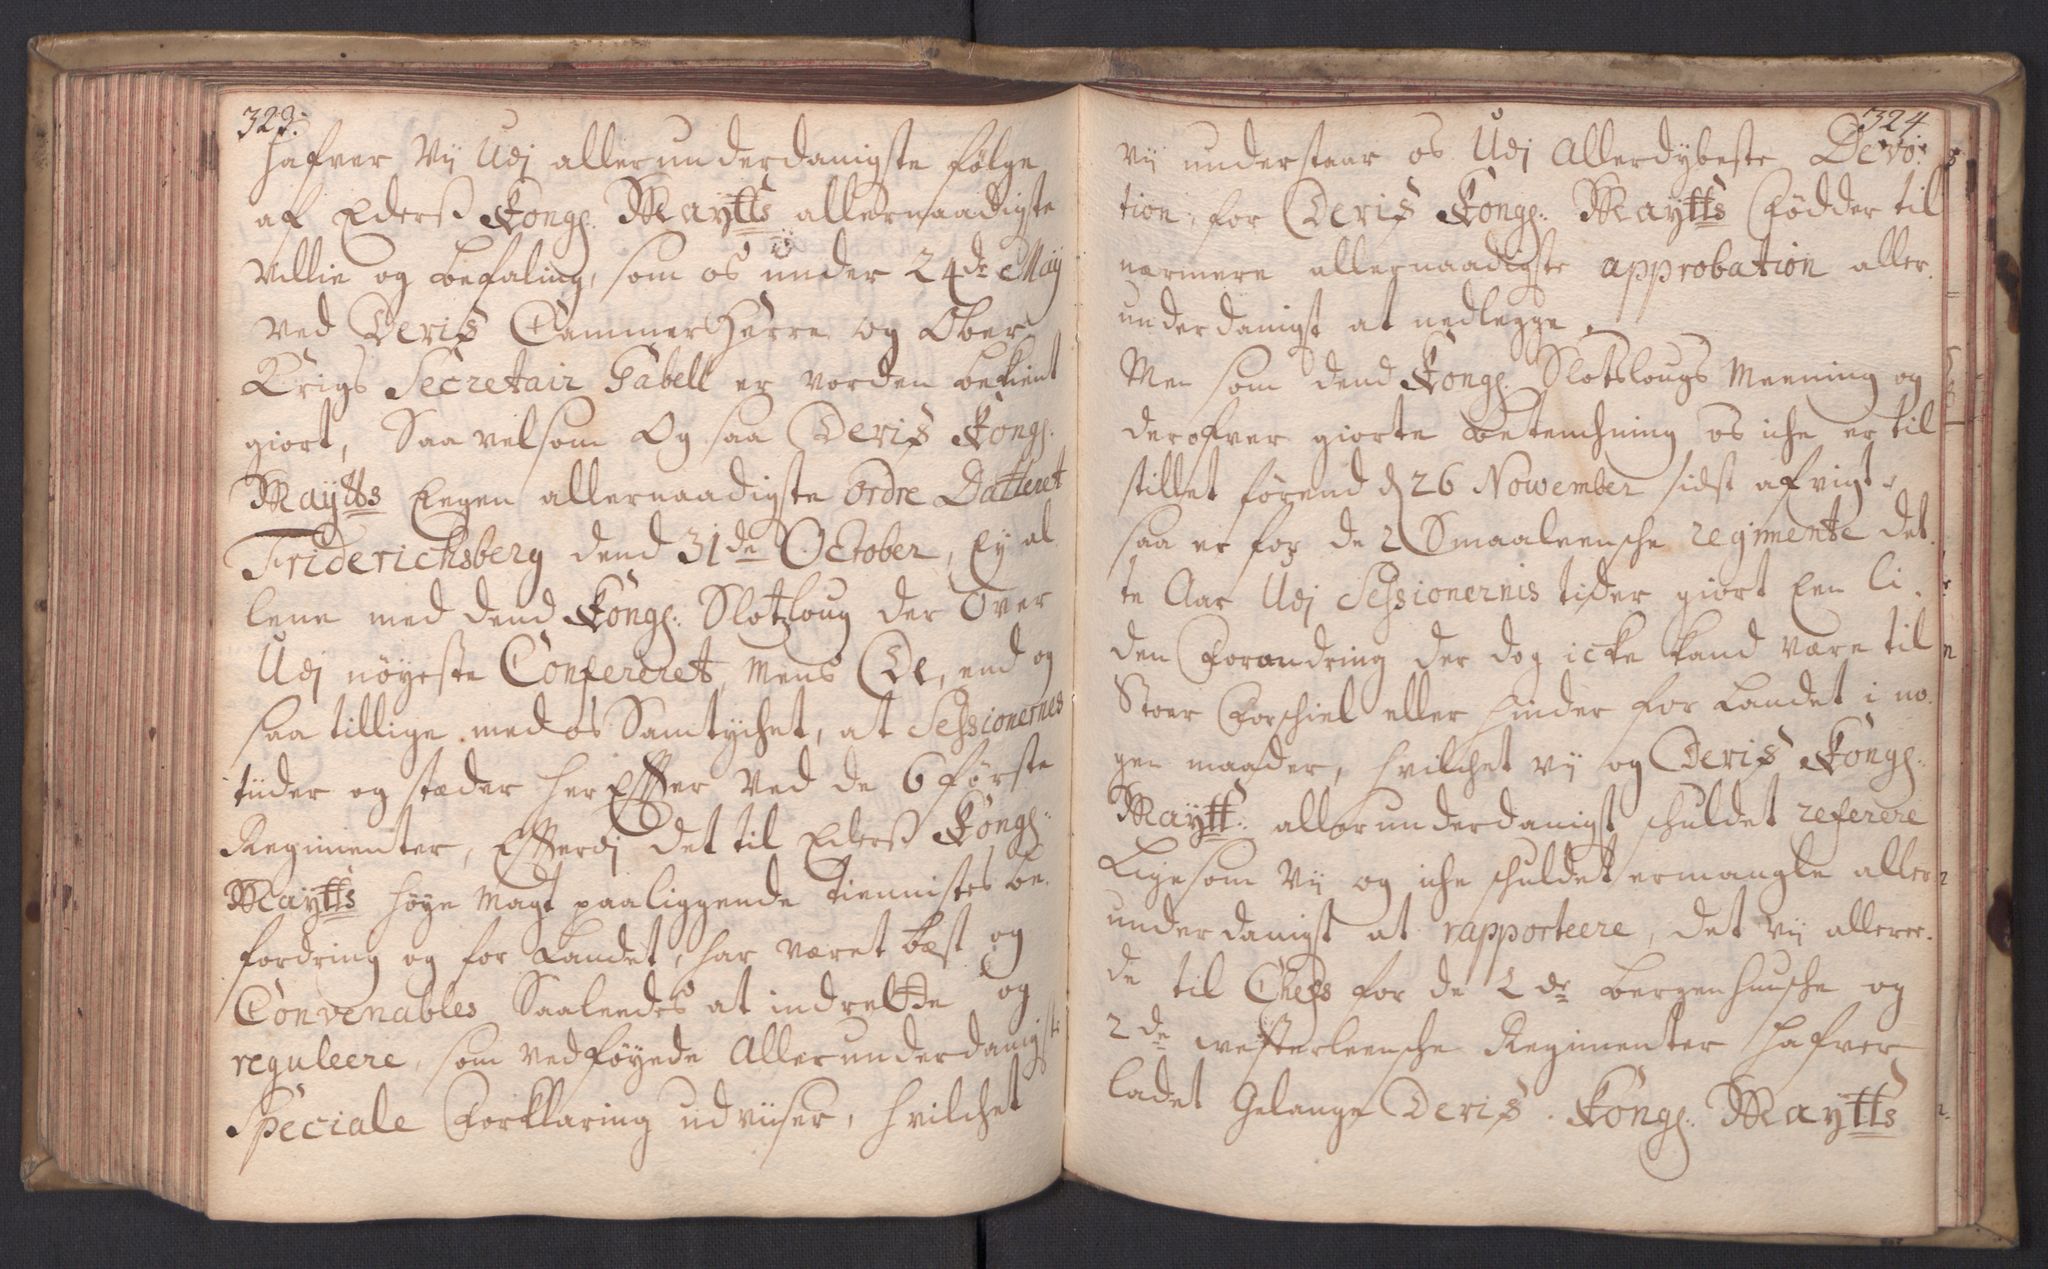 323.
hafver Vÿ Udj allerunderdanigste følge
af Ederß Kongl. Maÿtts allernaadigste
Villie og befaling, som os under 24de Maÿ
ved Deris CammerHerre og Ober
Krigs Secretair Gabell er vorden bekient
giort, Saa velsom Og saa Deris Kongl.
Maÿtts Eegen allernaadigste Ordre Datteret
Friderichsberg dend 31de October, Eÿ al
lene med dend Kongl. Slotzloug der Over
Udj nöyeste Confereret, Mens De, end og
saa tillige med os Samtÿchet, at Sessionernes
tüder og stæder her Effter Ved de 6 første
Regimenter, Effterdj det til Ederß Kongl:
Maÿtts höye Magt paaliggende tiennistes be,
fordring og for Landet, har været bæst og
Convenables Saaleedes at indrette og
reguleere, som vedföyede Allerunderdanigste
Speciale Forklaring udviiser, hvilchet
324
vÿ understaar os Udj Allerdybeste Devo:
tion, for Deris Kongl: Maÿtts Fødder til
nærmere allernaadigste approbation aller.
underdanigst at nedlegge.
Men som dend Kongl. Slotslougs Meening og
derofver giorte betenchning os iche er til
stillet förend d 26 Nowember sidst afvigte
saa er for de 2 Smaaleensche regimente det.
te Aar Udj Sessionernis tider giort Een li,
den Forandring der dog icke kand være til
Stoer Forschiel eller hinder for Landet i no
gen maader, hvilchet vÿ og Deris Kongl.
Maÿtt: allerunderdanigst schuldet referere
Ligesom Vÿ og iche schuldet ermangle aller
underdanigst at rapporteere, det vÿ alleree.
de til Chefs for de 2de bergenhuusche og
2de westerleensche Regimenter hafver
ladet Gelange Deris Kongl. Maÿtts